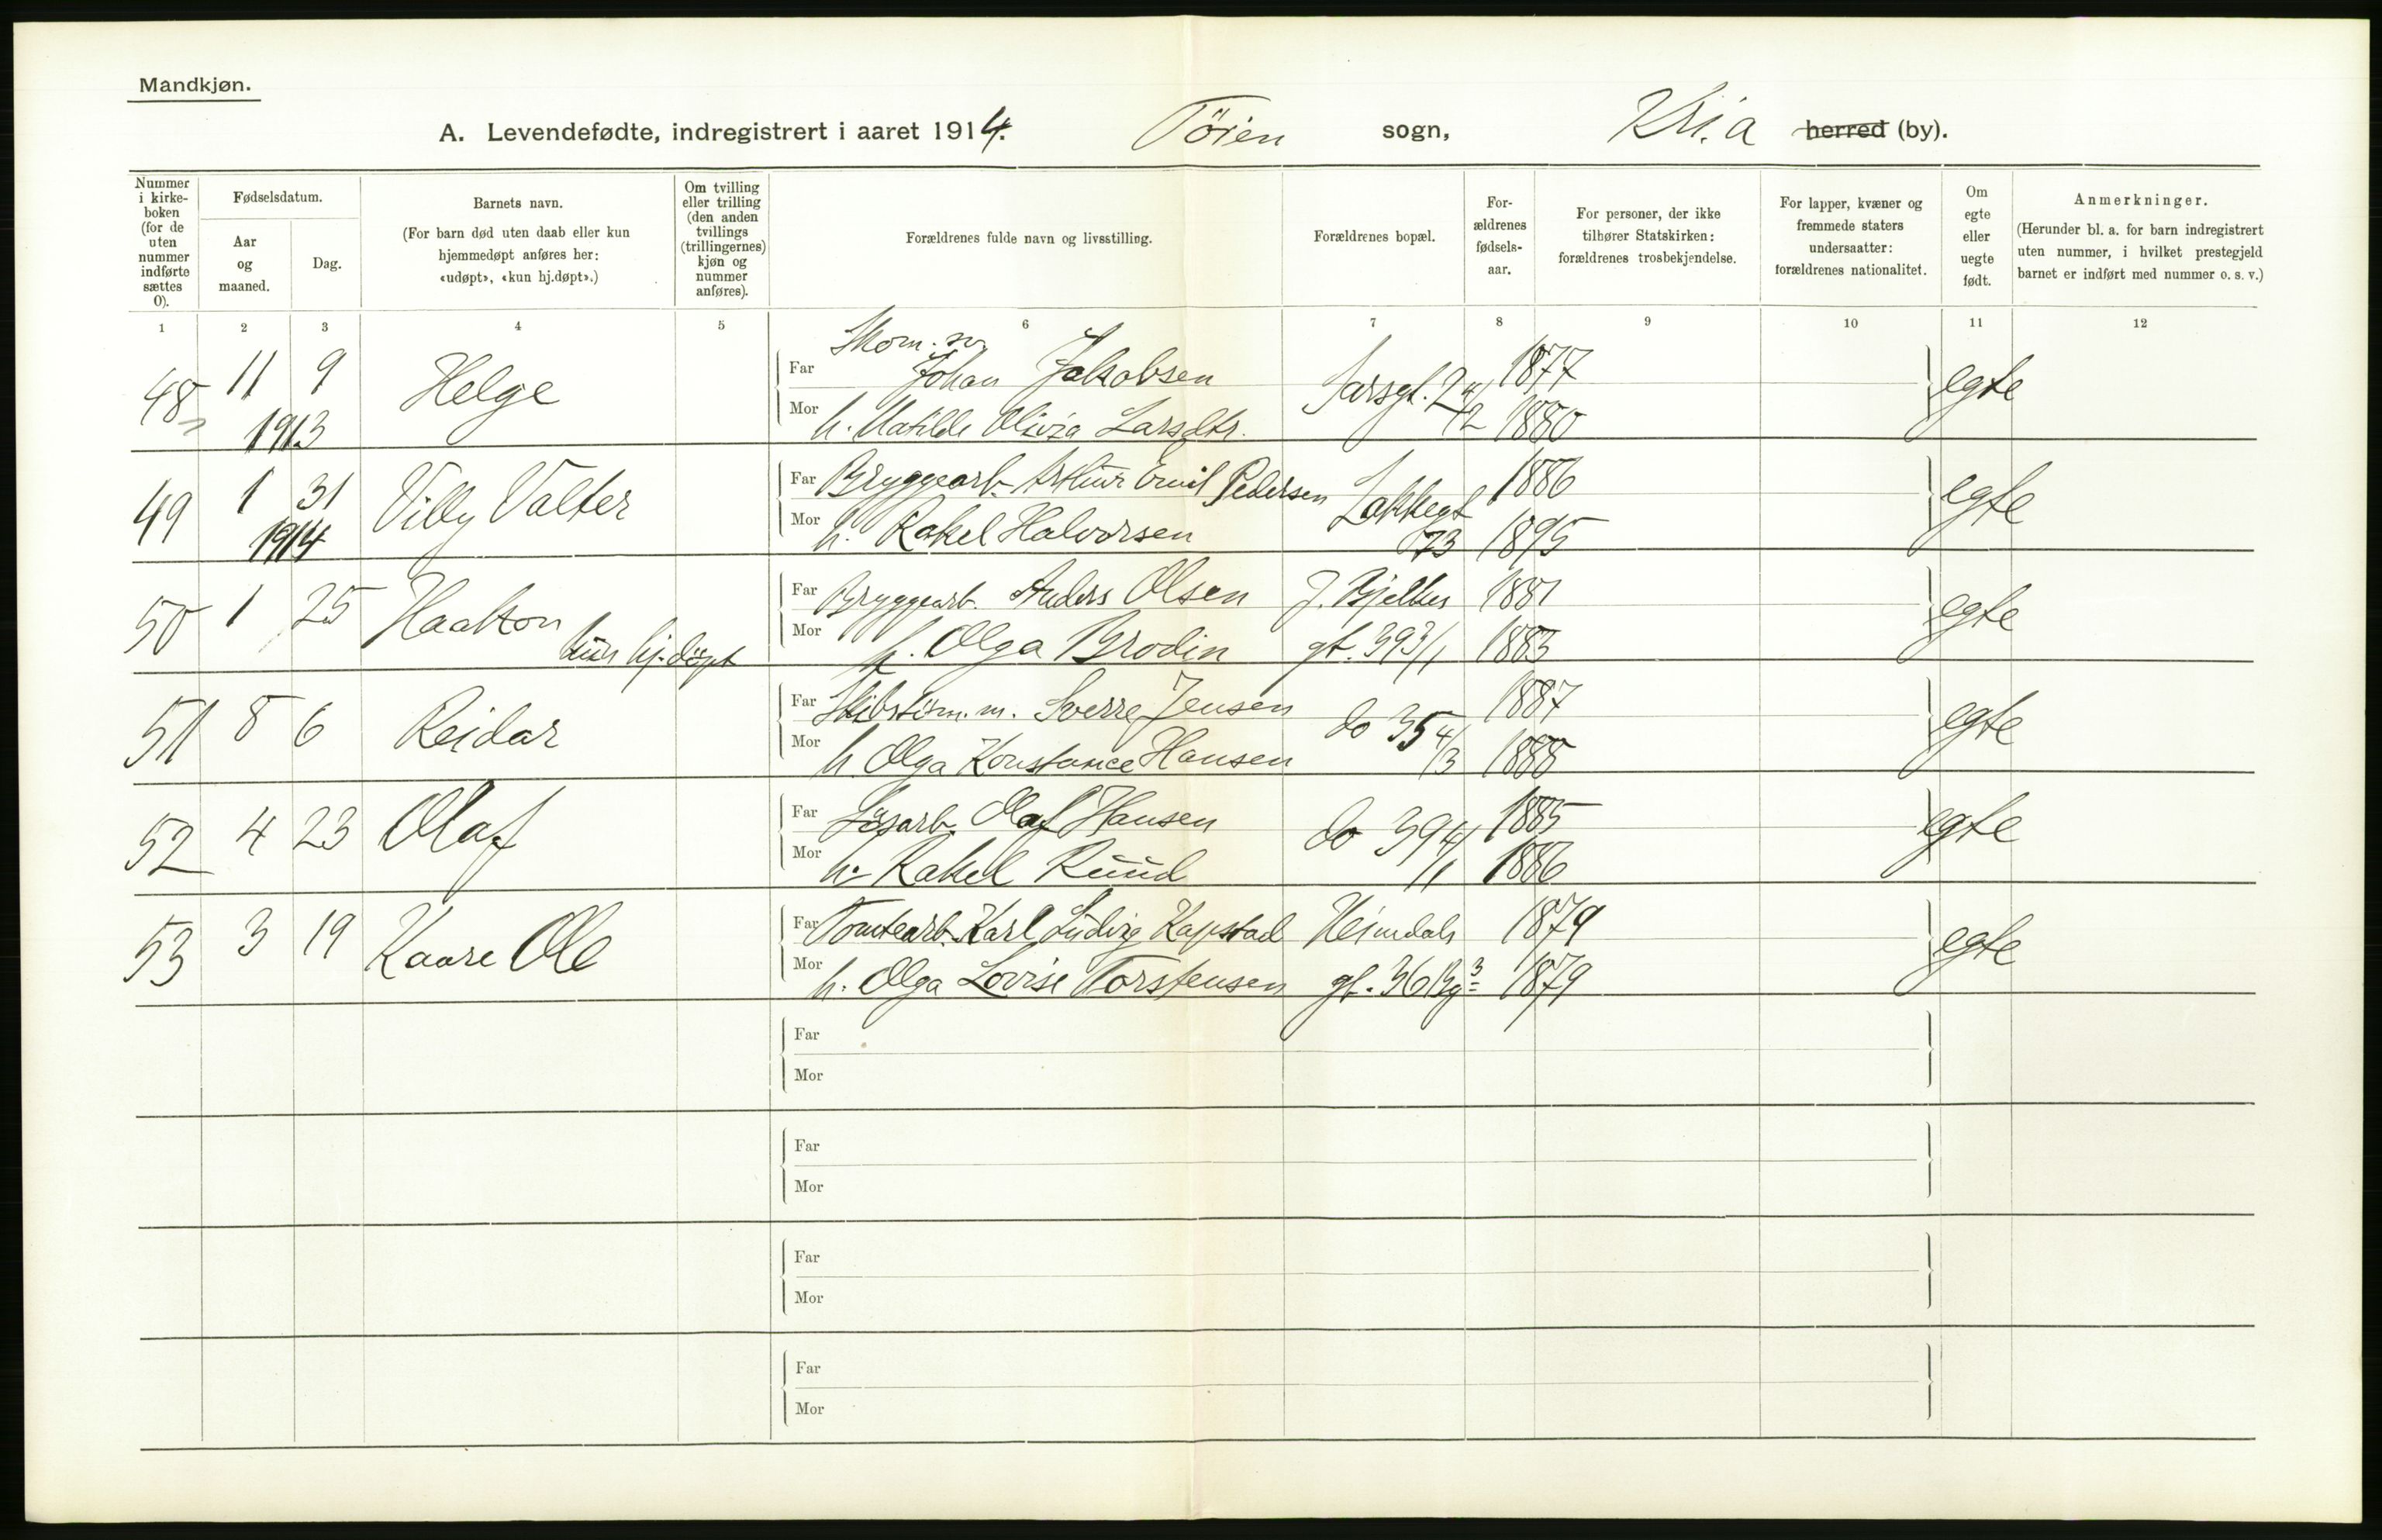 Mandkjøn.
A. Levendefødte, indregistrert i aaret 1914. Töien sogn, Kri.a herred (by).
Nummer i kirke-boken (for de uten nummer indførte sættes 0).
Fødselsdatum.
Aar og maaned.
Dag.
Barnets navn.
(For barn død uten daab eller kun hjemmedøpt anføres her: «udøpt», «kun hj.døpt».)
Om tvilling eller trilling (den anden tvillings (trillingernes) kjøn og nummer anføres).
Forældrenes fulde navn og livsstilling.
Forældrenes bopæl.
For-ældrenes fødsels-aar.
For personer, der ikke tilhører Statskirken: forældrenes trosbekjendelse.
For lapper, kvæner og fremmede staters undersaatter: forældrenes nationalitet.
Om egte eller uegte født.
Anmerkninger.
(Herunder bl. a. for barn indregistrert uten nummer, i hvilket prestegjeld barnet er indført med nummer o. s. v.)
1 2 3 4 5 6 7 8 9 10 11 12
48 11 1913 9 Helge
Far Skom. sv. Johan Jakobsen Sarsgt. 2 4/2 1877 egte
Mor h. Matilde Olivia Larsdtr. 1880
49 1 1914 31 Villy Valter
Far Bryggearb. Arthur Emil Pedersen Lakkegt 73 1886 egte
Mor h. Rakel Halvorsen 1895
50 1 25 Haakon kun hj.döpt
Far Bryggearb. Anders Olsen J. Bjelkes 1881 egte
Mor h. Olga Brodin gt. 393/1 1883
51 8 6 Reidar
Far Sverre Jensen do 35 4/3 1887 egte
Mor h. Olga Konstance Hansen 1888
52 4 23 Olaf
Far Løsarb. Olaf Hansen do 39 4/1 1885 egte
Mor h. Rakel Ruud 1886
53 3 19 Kaare Ole
Far Tomtearb. Karl Ludvig Kapstad Heimdals 1879 egte
Mor h. Olga Lovise Torstensen gt. 36 1879
Far
Mor
Far
Mor
Far
Mor
Far
Mor